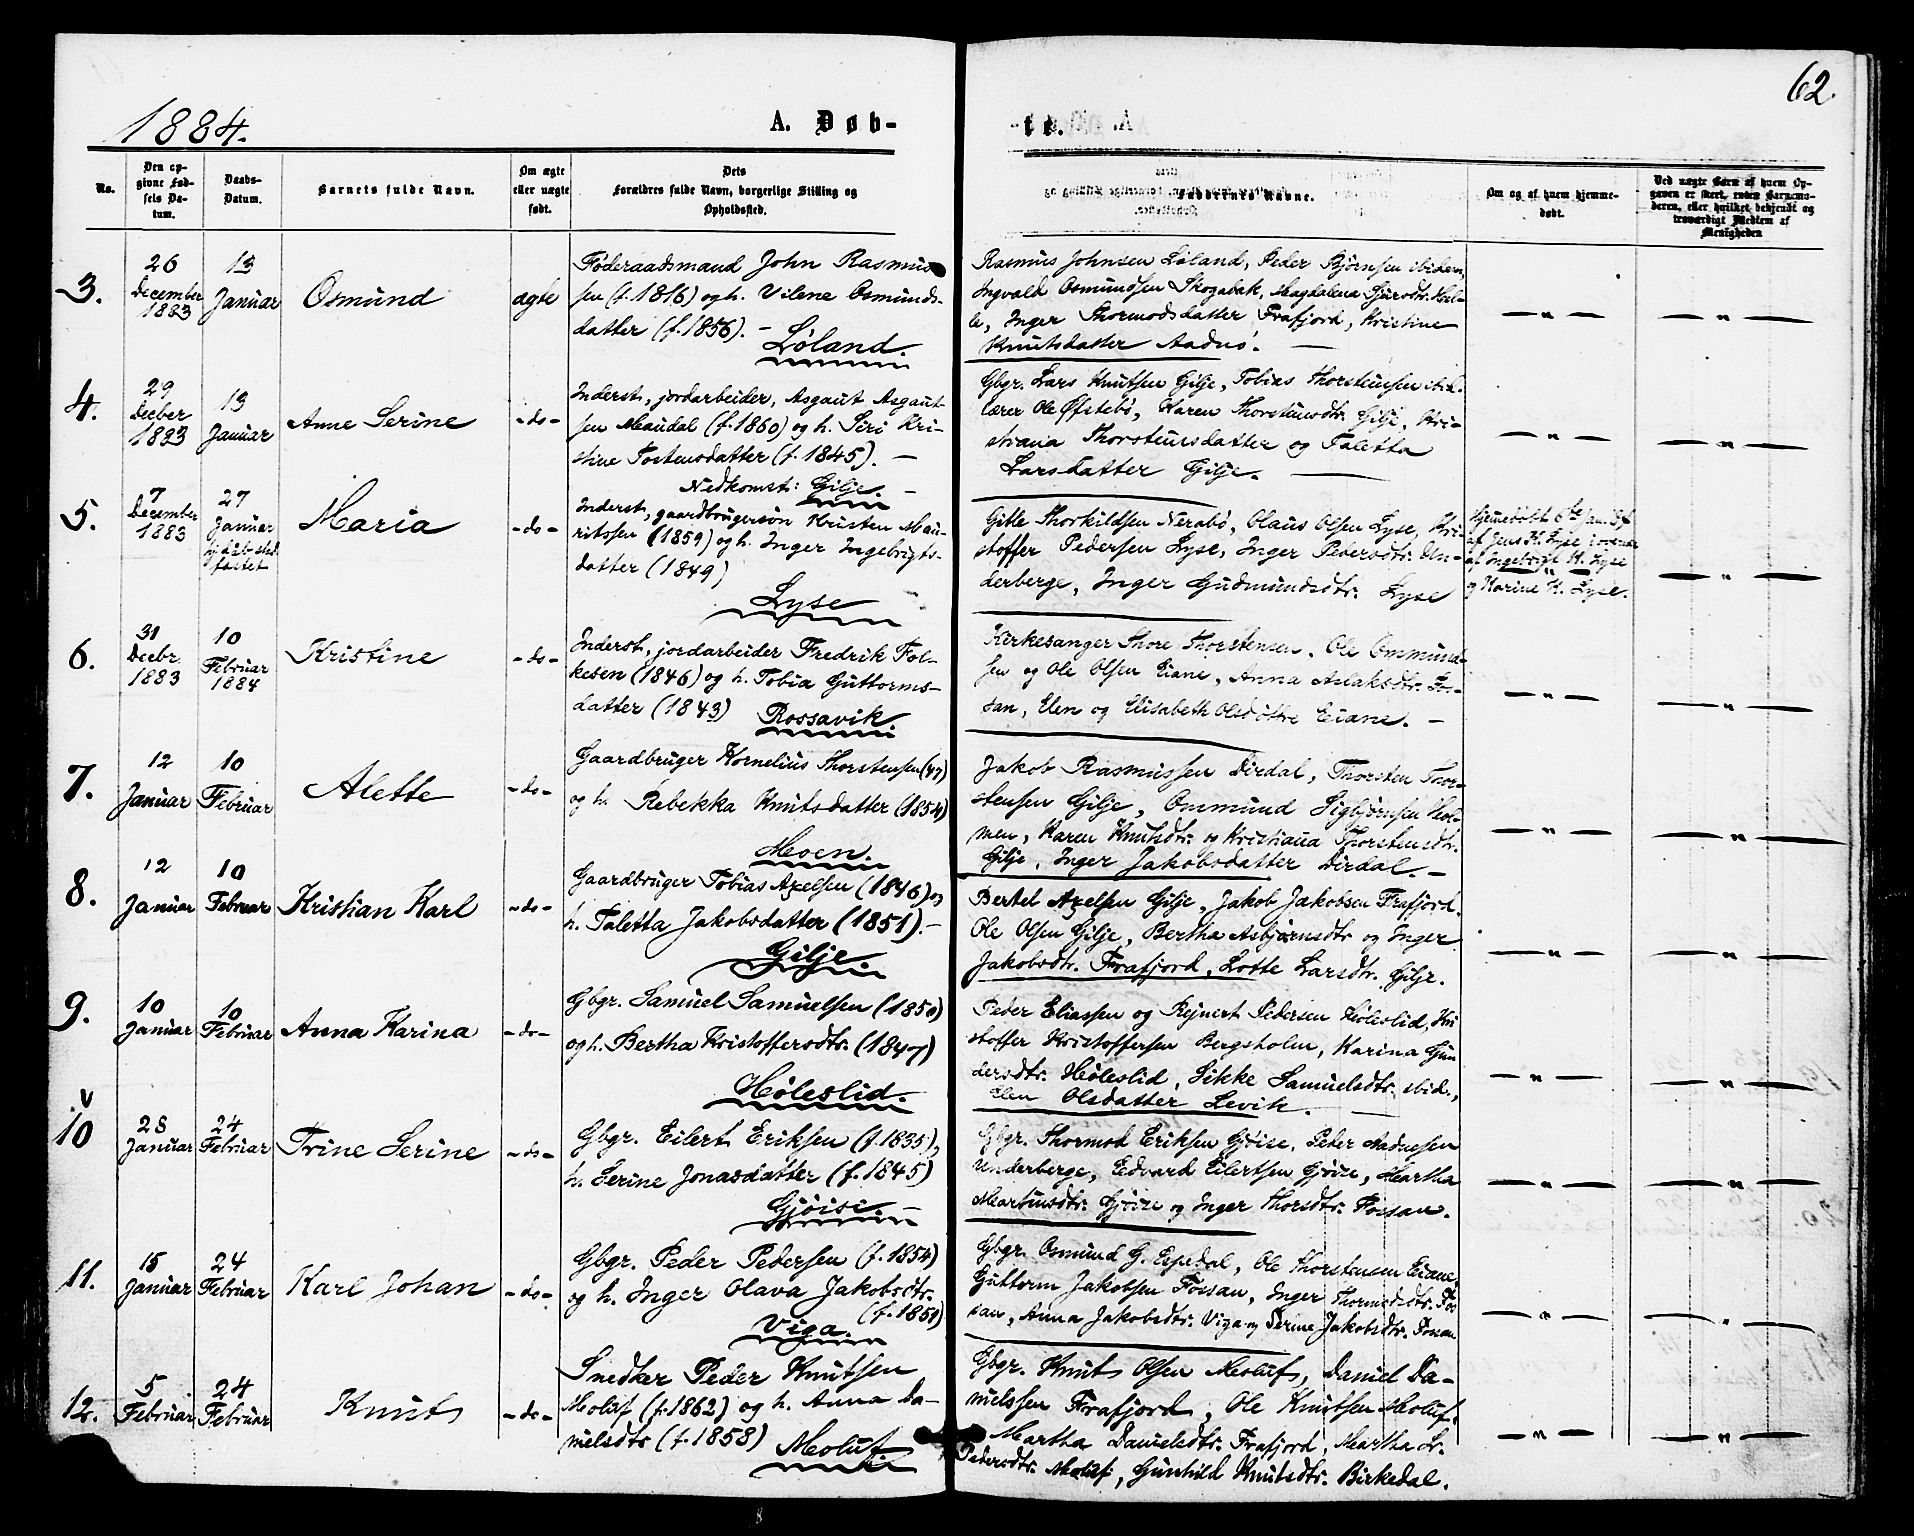 62.
1884.
A. Døb-
te.
No.
Den op-
givne Fød-
sels Da-
tum.
Daabs-
Datum.
Barnets fulde Navn.
Om ægte
eller uægte
født.
Dets
Forældres fulde Navn, borgerlige Stilling og
Opholdssted.
Faddernes Navne.
Om og af hvem hjemme-
døbt.
Ved uægte Børn af hvem Op-
gaven er skeet, enten Barnemo-
deren, eller hvilket bekjendt og
troværdigt Medlem af
Menigheden
3.
26
December
1883
13
Januar
Osmund
ægte
Føderaadsmand John Rasmus-
sen (f. 1816) og h. Vilene Osmunds-
datter (f. 1856). –
Løland.
Rasmus Johnsen Løland, Peder Bjørnsen ibidem,
Ingvald Osmundsen Skogabak, Magdalena Sjursdtr. Hel-
le, Inger Thormodsdatter Frafjord, Kristine
Knutsdatter Aadnø. —
— " —
— " —
4.
29
Decber
1883
13
Januar
Anne Serine
-do-
Inderst, jordarbeider, Asgaut Asgaut-
sen Maudal (f. 1860) og h. Siri Kri-
stine Tostensdatter (f. 1845). —
Nedkomst: Gilje. –
Gbgr. Lars Knutsen Gilje, Tobias Thorstensen ibid.
lærer Ole Øfstebø, Karen Thorstensdtr. Gilje, Kri-
stiana Thorstensdatter og Taletta
Larsdatter Gilje. —
— " —
— " —
5.
7
December
1883
27
Januar
Maria
-do-
Inderst, gaardbrugersøn Kristen Mau-
ritssen (1859) og h. Inger Ingebrigts-
datter (1849)
Lyse
Gitle Thorkildsen Nerabø, Olaus Olsen Lyse, Kri-
stoffer Pedersen Lyse, Inger Pedersdtr. Un-
derberge, Inger Gudmundsdtr. Lyse
Hjemedøbt 6te Jan. 84
af Jens K. Lyse
af Ingebrigt K. Lyse
og Karine K. Lyse.
— " —
6.
31
Decbr.
1883
10
Februar
1884
Kristine
-do-
Inderst, jordarbeider Fredrik Fol-
kesen (1846) og h. Tobia Guttorms-
datter (1843) Rossavik.
Kirkesanger Thore Thorstensen, Ole Ommund-
sen og Ole Olsen Eiane, Anna Aslaksdtr. Fos-
san, Elen og Elisabeth Olsdøttre Eiane. –
— " —
— " —
7.
12
Januar
10
Februar
Alette
-do-
Gaardbruger Kornelius Thorstensen (47)
og h. Rebekka Knutsdatter (1854)
Moen.
Jakob Rasmussen Dirdal, Thorsten Thor-
stensen Gilje, Ommund Sigbjørnsen Hol-
men, Karen Knutsdtr. og Kristiana Thorstensdtr.
Gilje, Inger Jakobsdatter Dirdal. –
— " —
— " —
8.
12
Januar
10
Februar
Kristian Karl
-do-
Gaardbruger Tobias Axelsen (1846) og
h. Taletta Jakobsdatter (1851). –
Gilje.
Bertel Axelsen Gilje, Jakob Jakobsen Frafjord,
Ole Olsen Gilje, Bertha Asbjørnsdtr og Inger
Jakobsdtr. Frafjord, Lotte Larsdtr. Gilje.
— " —
— " —
9.
10
Januar
10
Februar
Anna Karina
-do-
Gbgr. Samuel Samuelsen (1850)
og h. Bertha Kristoffersdtr. (1847)
Høleslid.
Peder Eliassen og Rejnert Pedersen Høleslid, Kri
stoffer Kristoffersen Bergsholm, Karina Gun
dersdtr. Høleslid, Sikke Samuelsdtr. ibid.,
Elen Olsdatter Levik. —
— " —
— " —
v
10
28
Januar
24
Februar
Trine Serine
-do-
Gbgr. Eilert Eriksen (f. 1835),
h. Serine Jonasdatter (f. 1845)
Gjøise. –
Gbgr. Thormod Eriksen Gjøise, Peder Aadnesen
Underberge, Edvard Eilertsen Gjøise, Martha
Martinsdtr. Gjøise og Inger Thorsdtr. Fossan.
— " —
— " —
11.
15
Januar
24
Februar
Karl Johan
-do-
Gbgr. Peder Pedersen (f. 1854)
og h. Inger Olava Jakobsdtr.
(f. 1859)
Viga.
Gbgr. Osmund G. Espedal, Ole Thorstensen Eiane,
Guttorm Jakobsen Fossan, Inger Thormodsdtr. Fos
san, Anna Jakobsdtr. Viga og Serine Jakobsdtr. Fossan
— " —
— " —
12.
5
Februar
24
Februar
Knut
-do-
Snedker Peder Knutsen
Moluf (f. 1862) og h. Anna Da-
nielsdtr (f. 1858) Moluf.
Gbgr. Knut Olsen Moluf, Daniel Da-
nielssen Frafjord, Ole Knutsen Moluf,
Martha Danielsdtr. Frafjord, Martha L.
Pedersdtr. Moluf, Gunhild Knutsdtr. Birkedal.
— " —
— " —
8